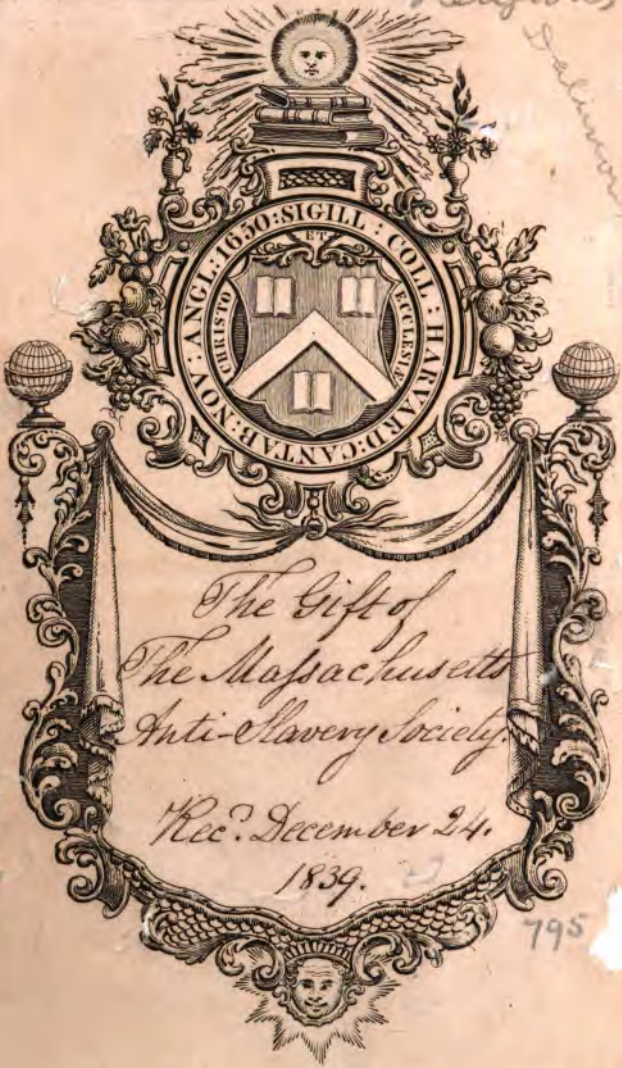 SIGILL : COLL : HARVARD : CANTAB : NOV : ANGL : 1650 :
CHRISTO ET ECCLESIÆ
The Gift of
The Maſsachusetts
Anti-Slavery Society.
Rec.d December 24.
1839.
795